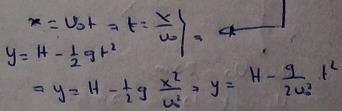 x = v₀t ⇒ t = x/v₀ } ⇒
y = H - 1/2 g t²
⇒ y = H - 1/2 g x²/v₀² ⇒ y = H - g/2v₀² t²